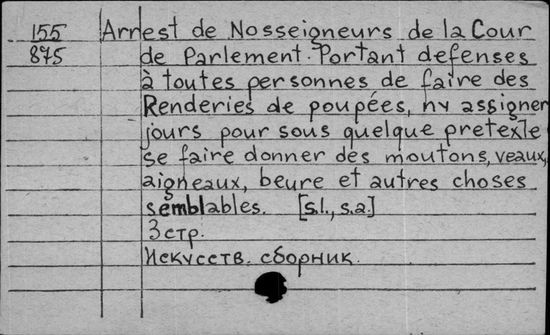 155 Arrest de Nosseigneurs de la Cour
875 de Parlement. Portant defenses
à toutes personnes de faire des
Renderies de poupées, ny assigner
jours pour sous quelque pretexte
se faire donner des moutons, veaux,
aigneaux, beure et autres choses
semblables. [s.l., s.a.]
3 стр.
Искусств. сборник.